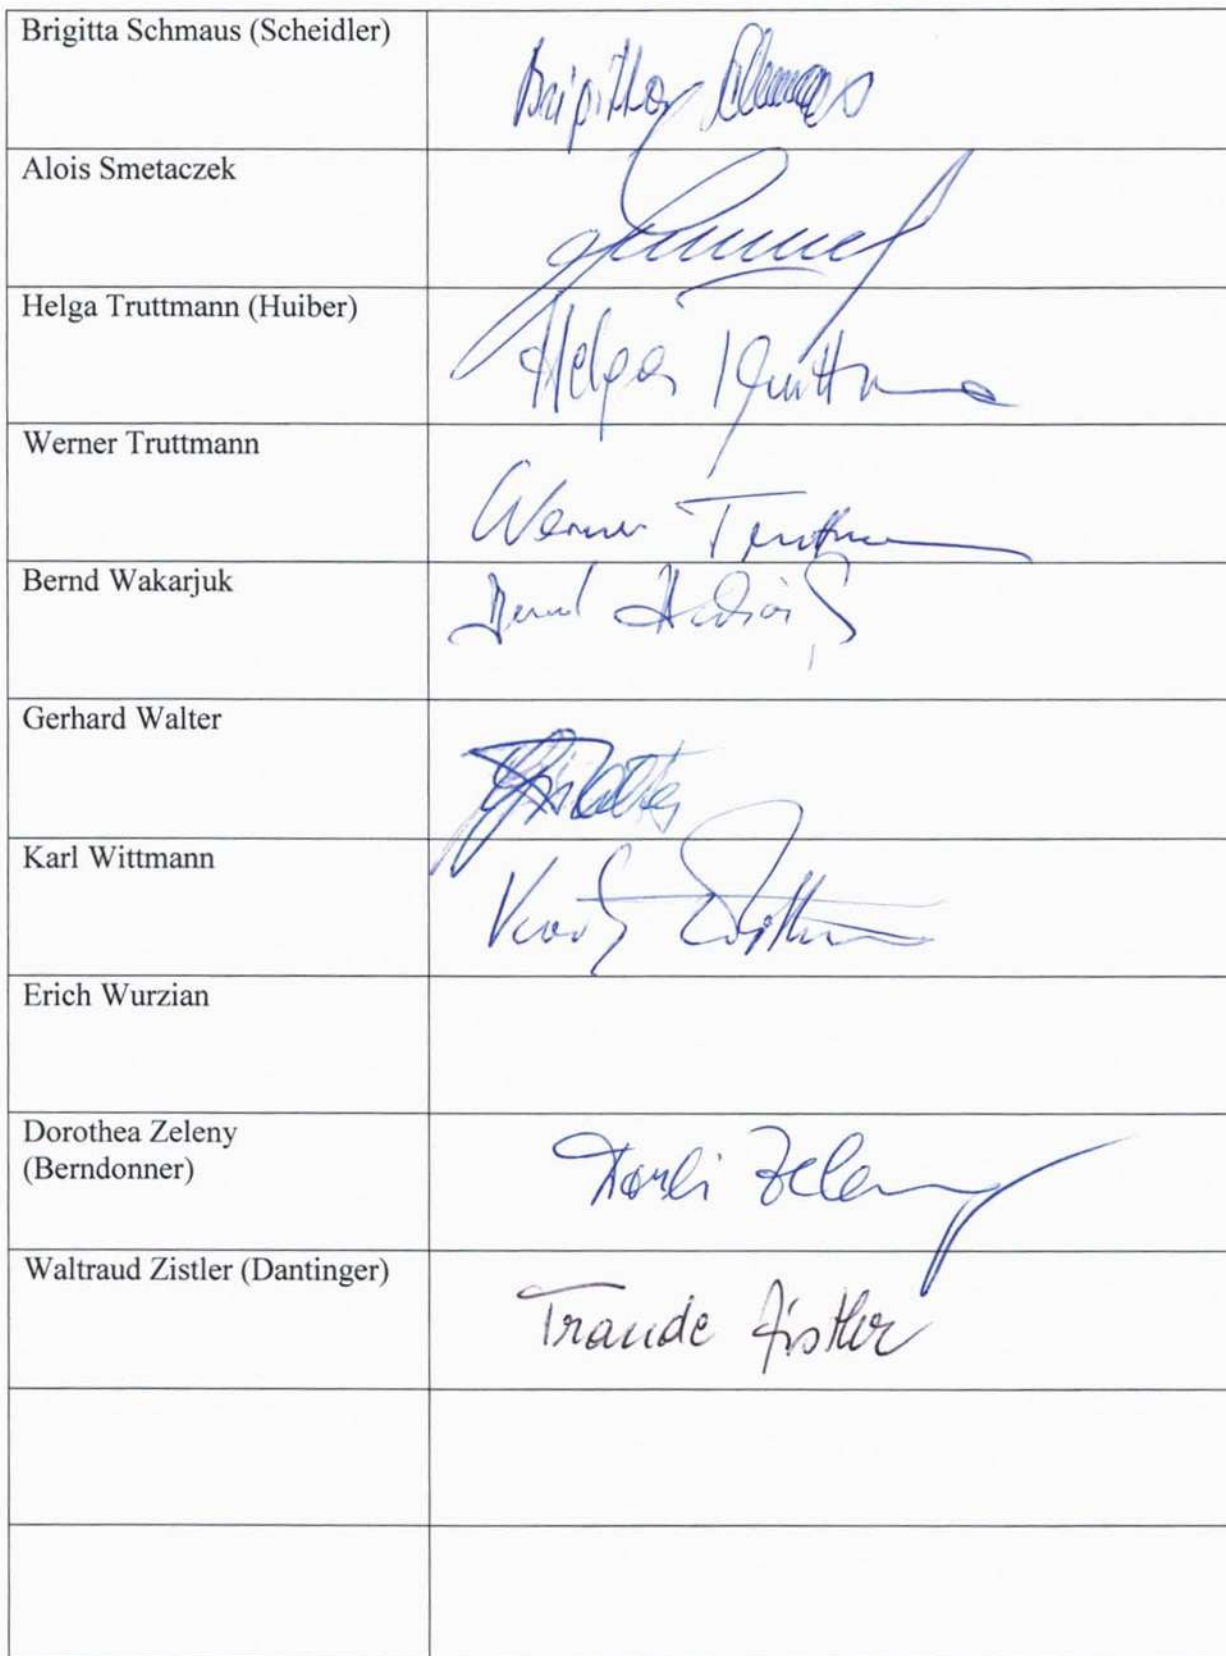 Brigitta Schmaus (Scheidler)
Brigitta Schmaus
Alois Smetaczek
Helga Truttmann (Huiber)
Helga Truttmann
Werner Truttmann
Werner Truttmann
Bernd Wakarjuk
Bernd
Gerhard Walter
Karl Wittmann
Karl Wittmann
Erich Wurzian
Dorothea Zeleny
(Berndonner)
Dorli Zeleny
Waltraud Zistler (Dantinger)
Traude Zistler